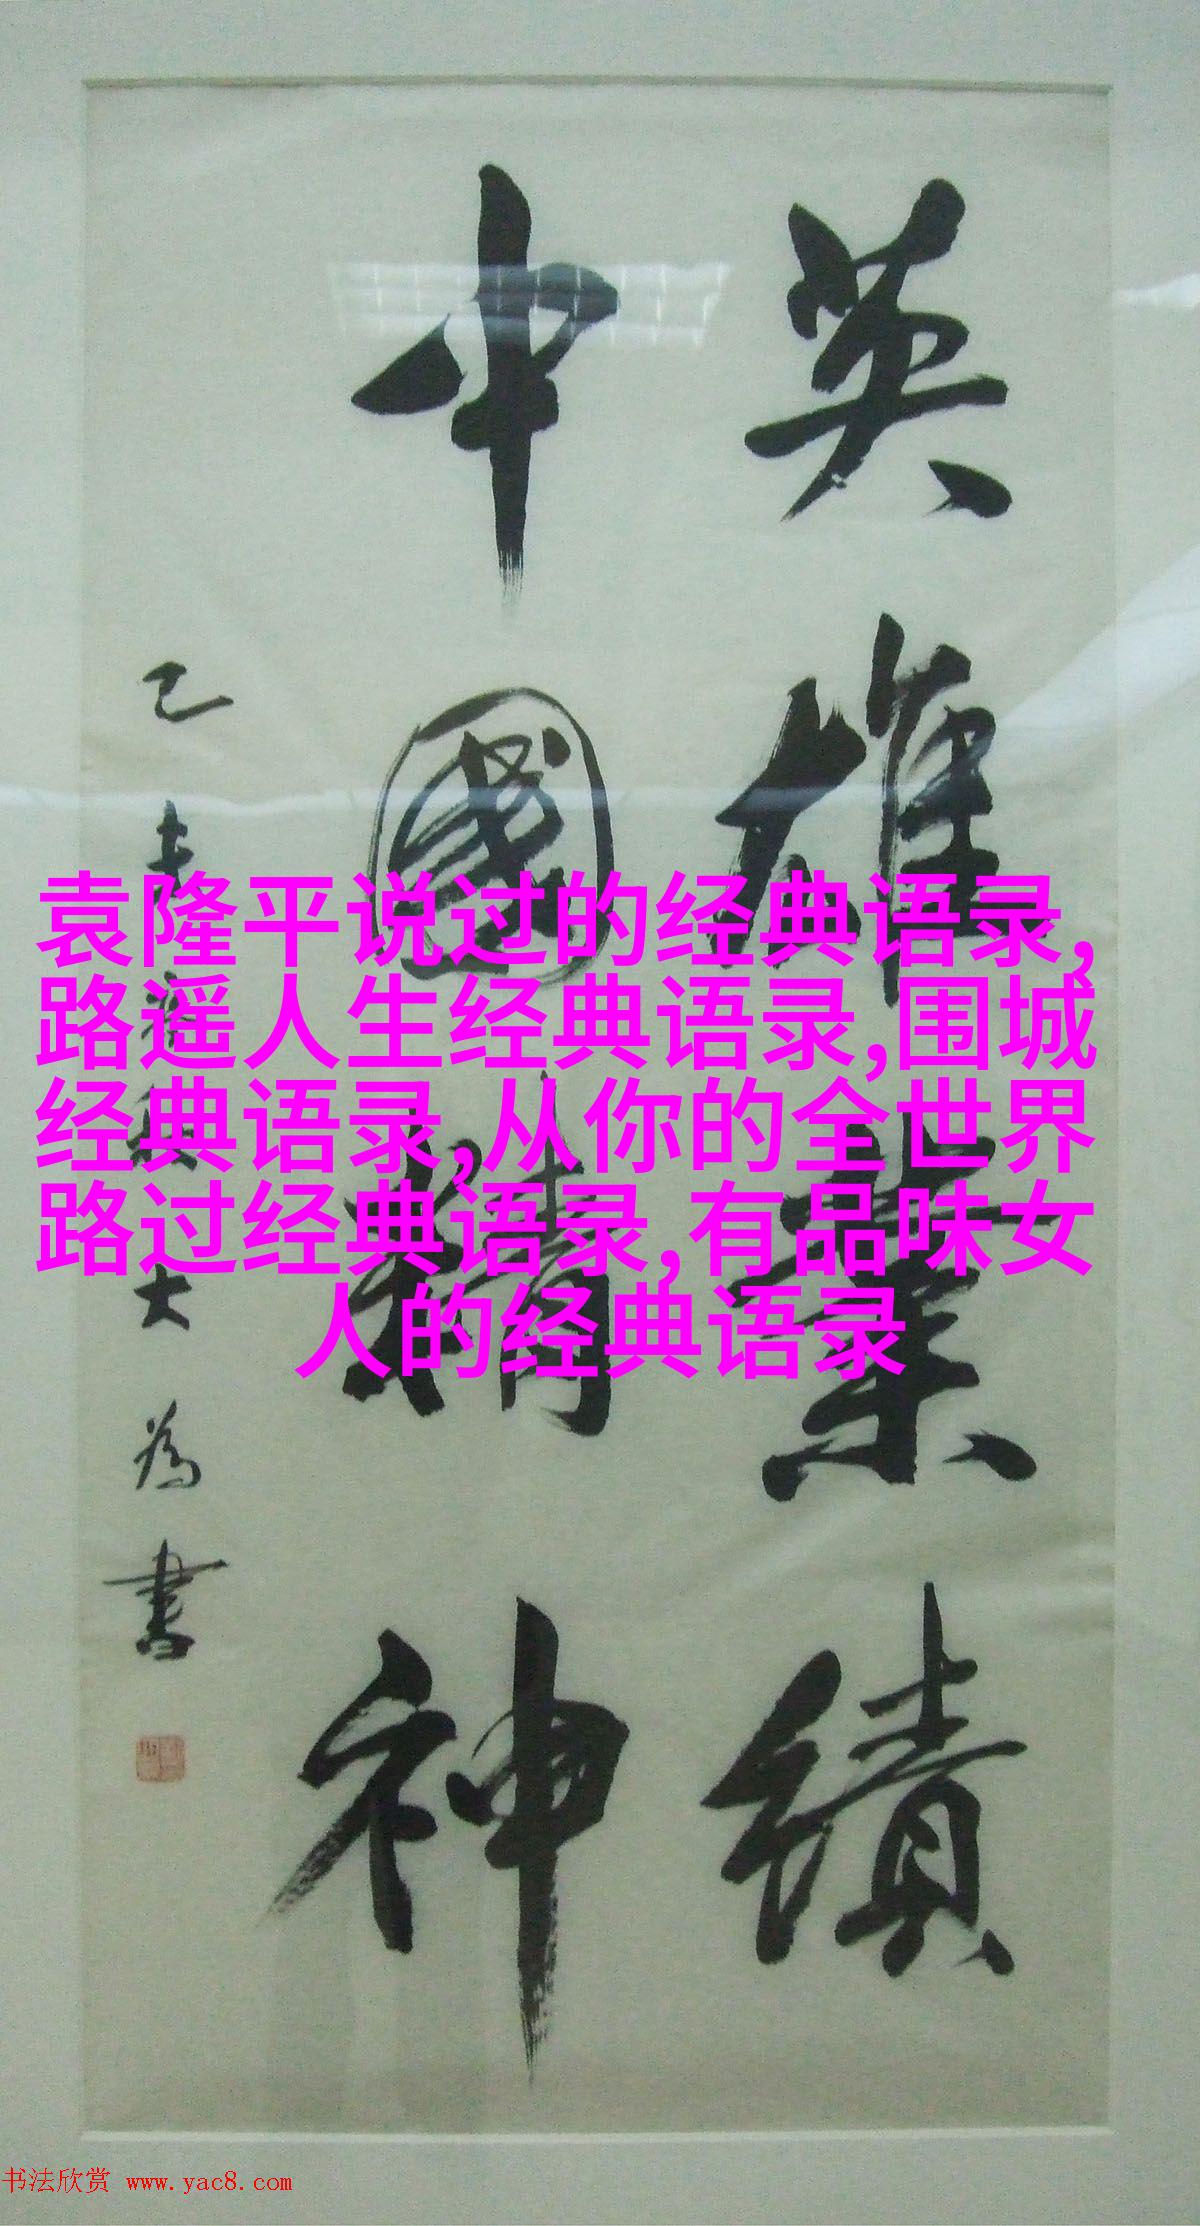 英雄業績
中國精神
大為書
袁隆平说过的经典语录,
路遥人生经典语录,围城
经典语录,从你的全世界
路过经典语录,有品味女
人的经典语录
书法欣赏 www.yac8.com